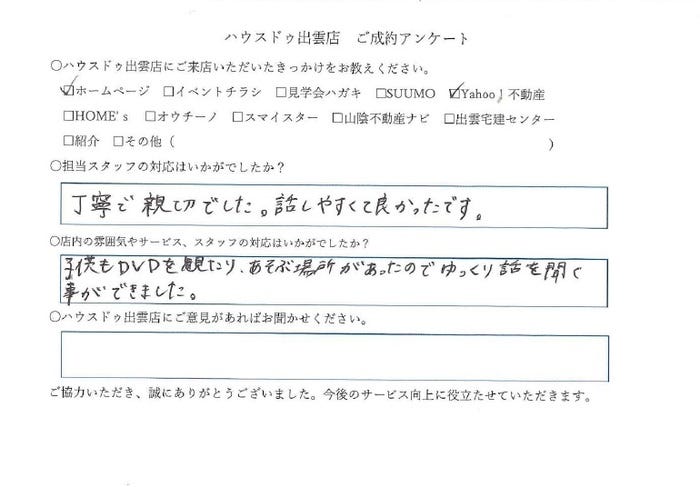 ハウスドゥ出雲店　ご成約アンケート
○ハウスドゥ出雲店にご来店いただいたきっかけをお教えください。
☑ホームページ　□イベントチラシ　□見学会ハガキ　□SUUMO　☑Yahoo！不動産
□HOME's　□オウチーノ　□スマイスター　□山陰不動産ナビ　□出雲宅建センター
□紹介　□その他（　　　　　　　　　　　　　　　　　　　　　　　　）
○担当スタッフの対応はいかがでしたか？
丁寧で親切でした。話しやすくて良かったです。
○店内の雰囲気やサービス、スタッフの対応はいかがでしたか？
子供もDVDを観たり、あそぶ場所があったのでゆっくり話を聞く
事ができました。
○ハウスドゥ出雲店にご意見があればお聞かせください。
ご協力いただき、誠にありがとうございました。今後のサービス向上に役立たせていただきます。